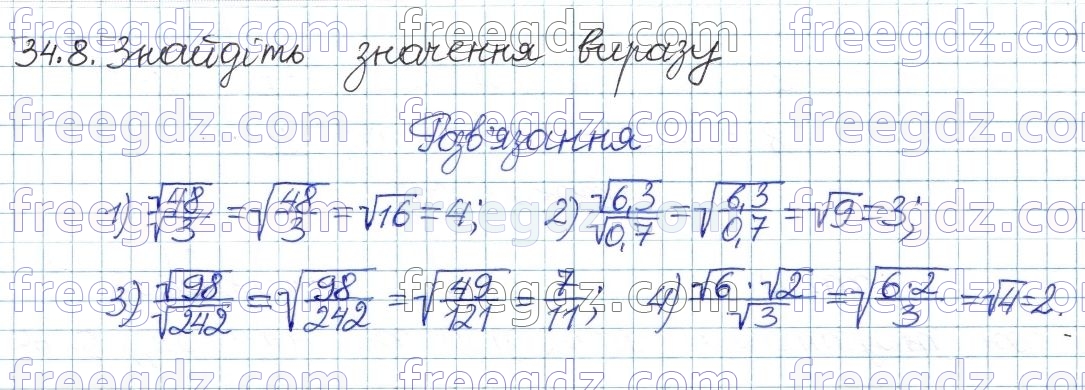 34.8. Знайдіть значення виразу
Розв'язання
1) √48/√3 = √(48/3) = √16 = 4; 2) √6,3/√0,7 = √(6,3/0,7) = √9 = 3;
3) √98/√242 = √(98/242) = √(49/121) = 7/11; 4) √6·√2/√3 = √(6·2/3) = √4 = 2.
freegdz.com